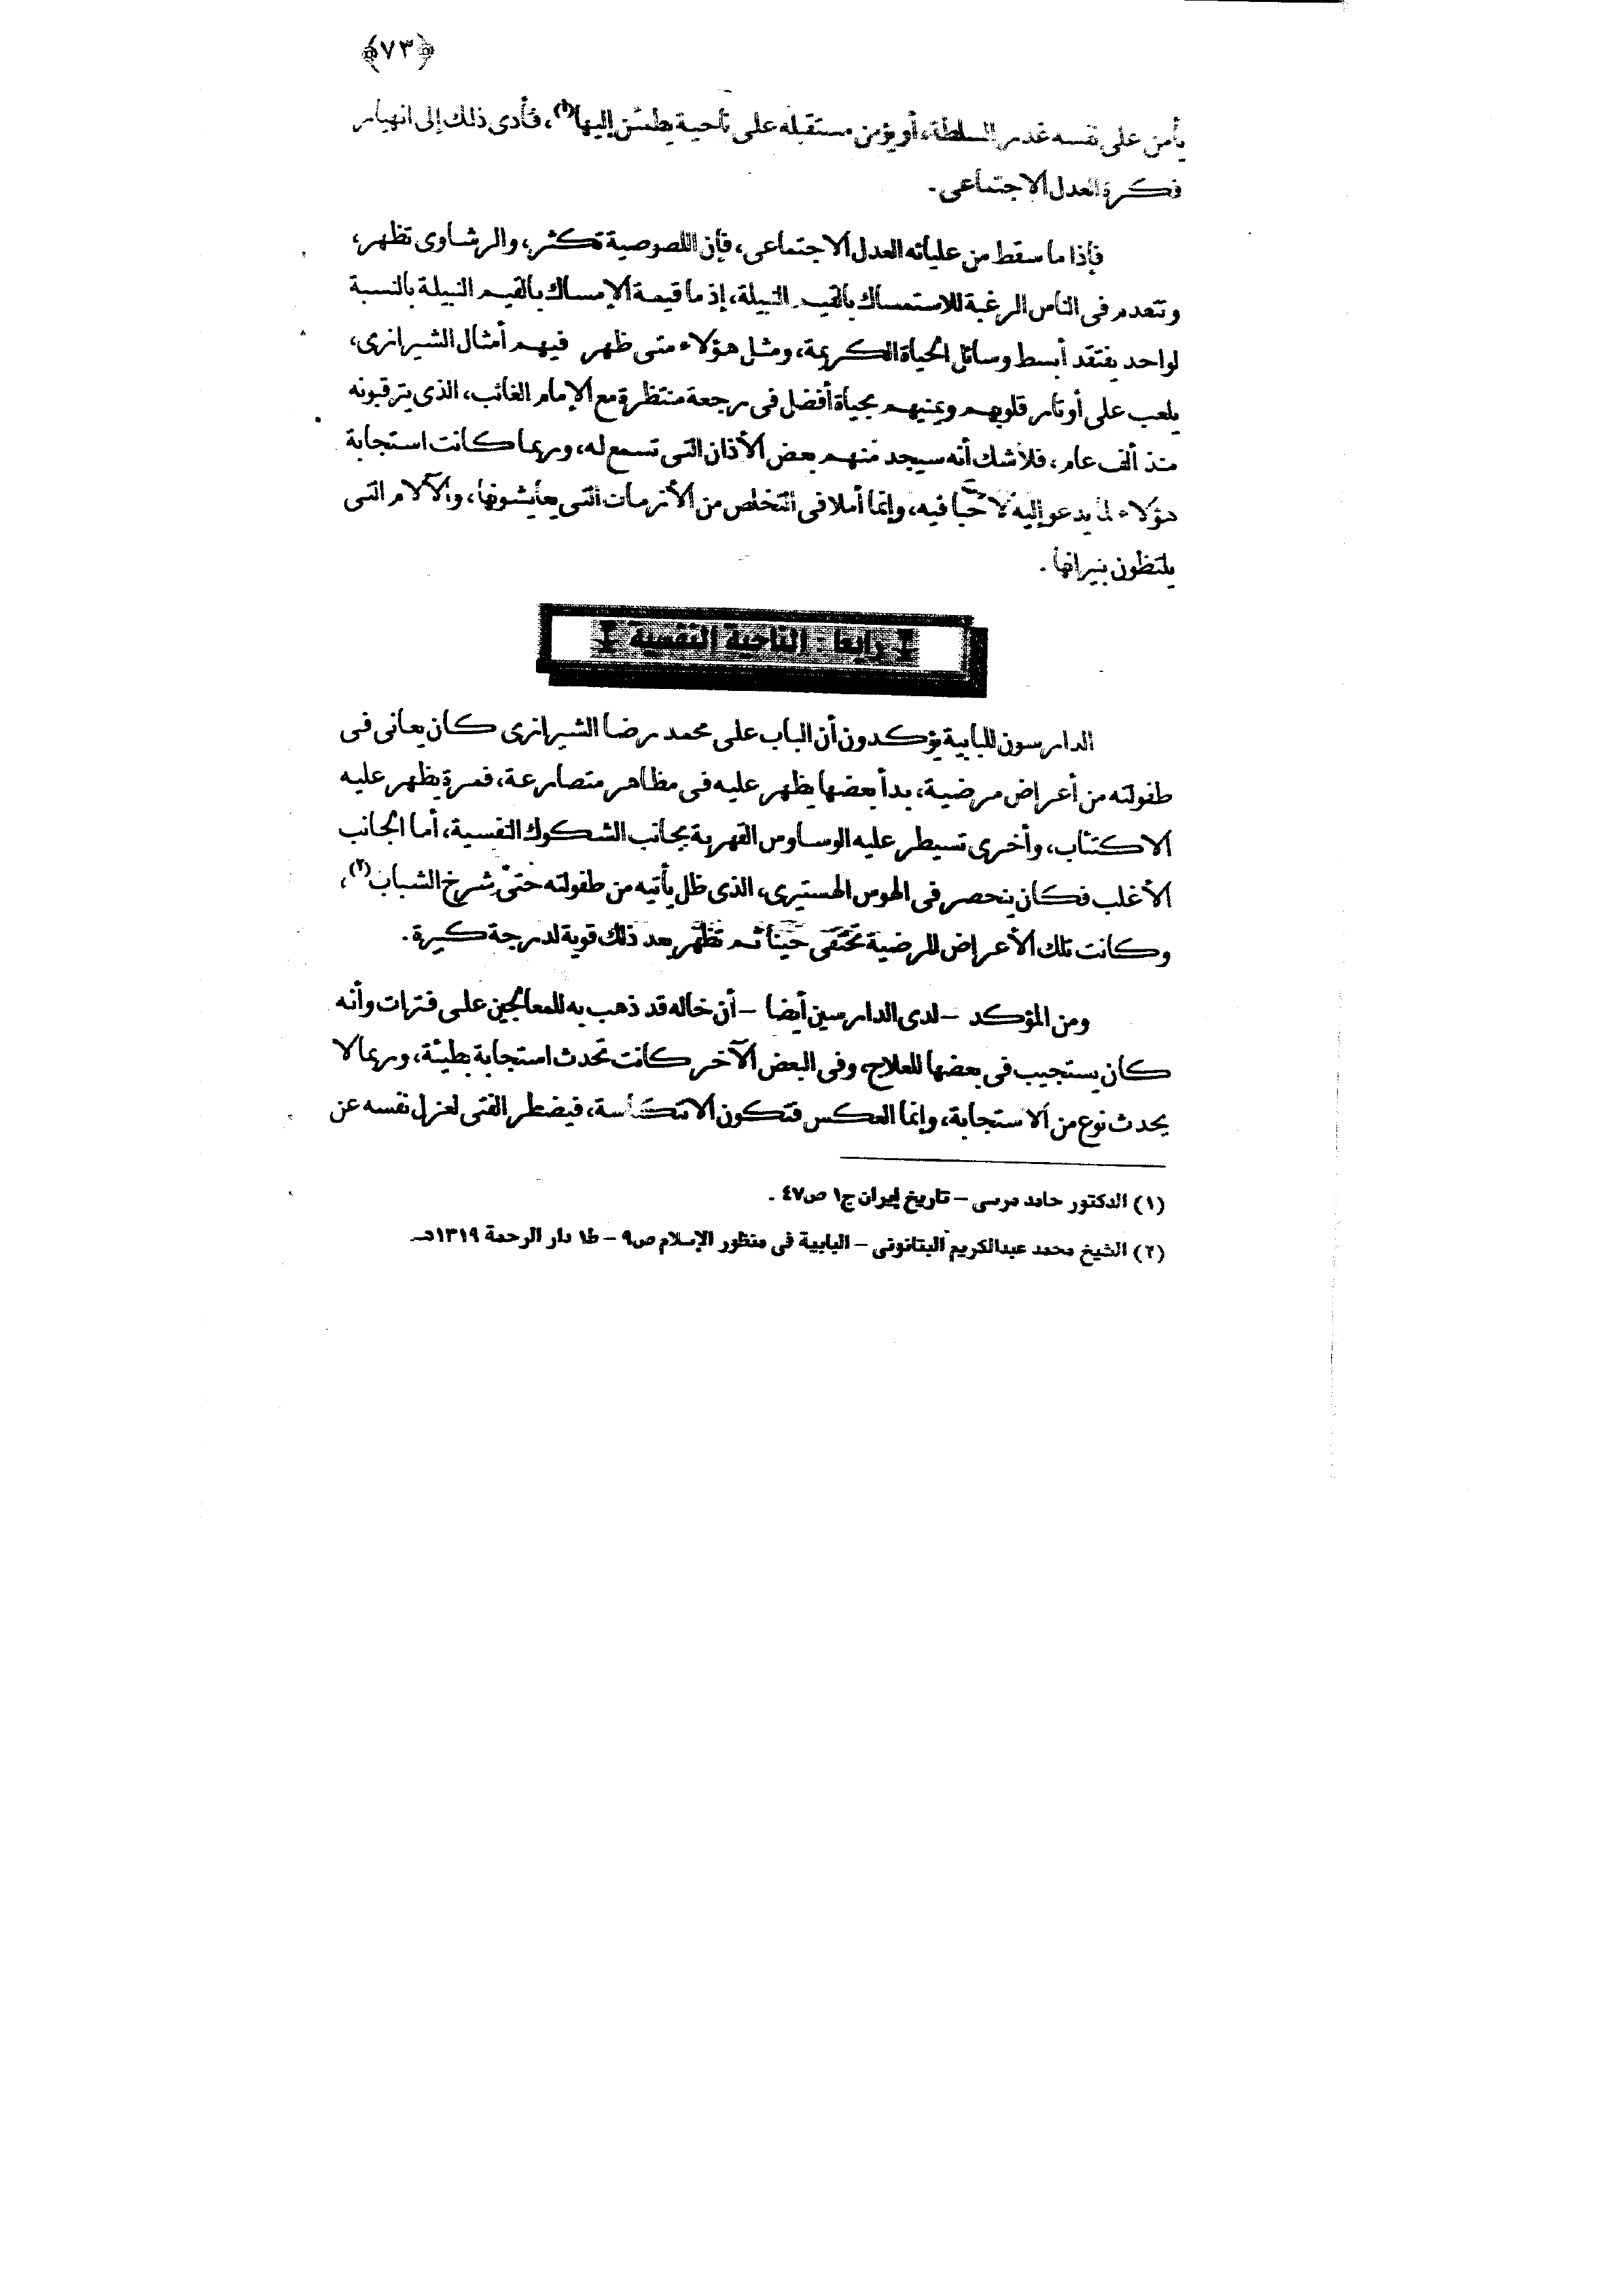 ﴿٧٣﴾
يأمن على نفسه غدر السلطة، أو يؤمن مستقبله على ناحية يطمئن إليها(١)، فأدى ذلك إلى انهيار
فكرة العدل الاجتماعى.
فإذا ما سقط من عليائه العدل الاجتماعى، فإن اللصوصية تكثر، والرشاوى تظهر،
وتنعدم فى الناس الرغبة للاستمساك بالقيم النبيلة، إذ ما قيمة الإمساك بالقيم النبيلة بالنسبة
لواحد يفتقد أبسط وسائل الحياة الكريمة، ومثل هؤلاء متى ظهر فيهم أمثال الشيرازى،
يلعب على أوتار قلوبهم ويمنيهم بحياة أفضل فى رجعة منتظرة مع الإمام الغائب، الذى يترقبونه
منذ ألف عام، فلا شك أنه سيجد منهم بعض الأذان التى تسمع له، وربما كانت استجابة
هؤلاء لما يدعو إليه لا حبا فيه، وإنما أملا فى التخلص من الأزمات التى يعايشونها، والآلام التى
يلتظون بنيرانها.
رابعا - الناحية النفسية
الدارسون للبابية يؤكدون أن الباب على محمد رضا الشيرازى كان يعانى فى
طفولته من أعراض مرضية، بدأ بعضها يظهر عليه فى مظاهر متصارعة، فمرة يظهر عليه
الاكتئاب، وأخرى تسيطر عليه الوساوس القهرية بجانب الشكوك النفسية، أما الجانب
الأغلب فكان ينحصر فى الهوس الهستيرى، الذى ظل يأتيه من طفولته حتى شرخ الشباب(٢)،
وكانت تلك الأعراض المرضية تختفى حينا ثم تظهر بعد ذلك قوية لدرجة كبيرة.
ومن المؤكد - لدى الدارسين أيضا - أن خاله قد ذهب به للمعالجين على فترات وأنه
كان يستجيب فى بعضها للعلاج، وفى البعض الآخر كانت تحدث استجابة بطيئة، وربما لا
يحدث نوع من الاستجابة، وإنما العكس فتكون الانتكاسة، فيضطر الفتى لعزل نفسه عن
(١) الدكتور حامد مرسى - تاريخ إيران ج١ ص٤٧.
(٢) الشيخ محمد عبدالكريم البتانونى - البابية فى منظور الإسلام ص٩ - ط١ دار الرحمة ١٣١٩هـ